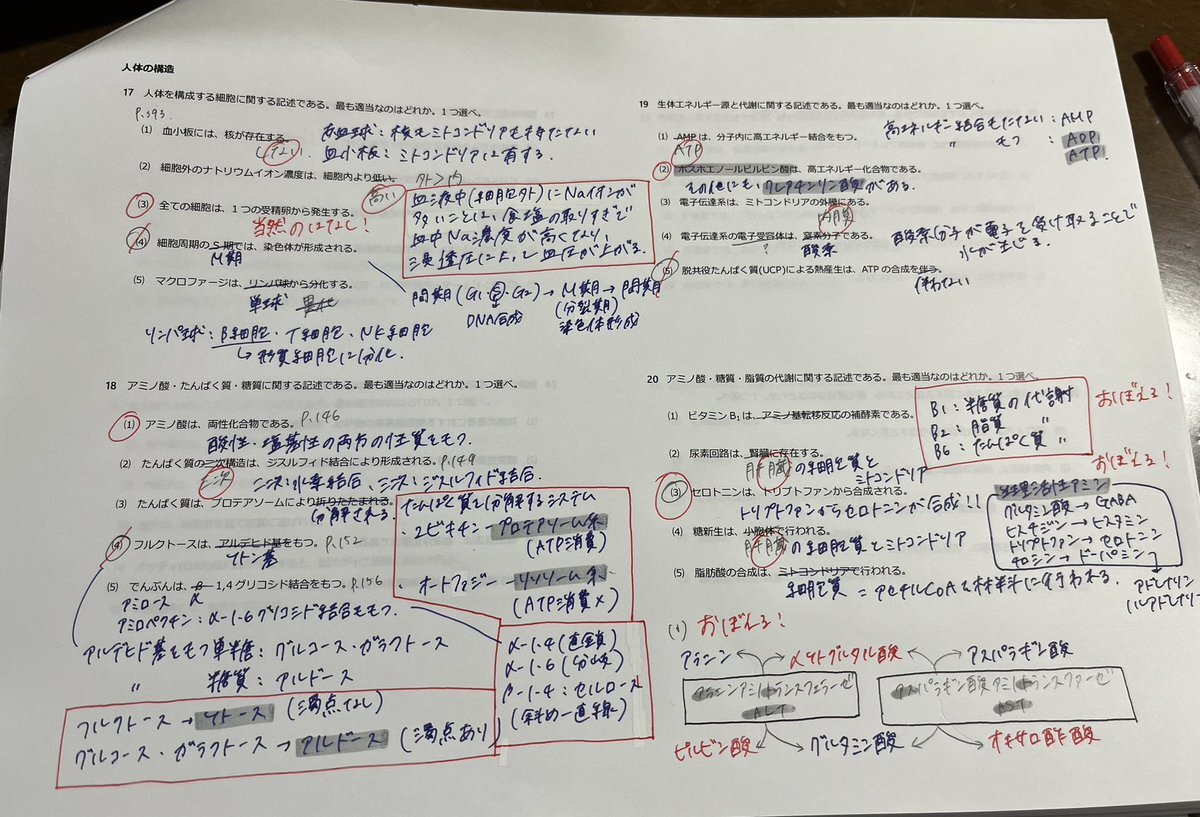 人体の構造
17 人体を構成する細胞に関する記述である。最も適当なのはどれか。1つ選べ。
P.393.
(1) 血小板には、核が存在する。
しない
赤血球：核もミトコンドリアも持たない
血小板：ミトコンドリアは有する。
(2) 細胞外のナトリウムイオン濃度は、細胞内より低い。
外＞内
高い
血液中(細胞外)にNaイオンが
多いことは、食塩の取りすぎで
血中Na濃度が高くなり、
浸透圧によって血圧が上がる。
(3) 全ての細胞は、1つの受精卵から発生する。
当然のはなし！
(4) 細胞周期のS期では、染色体が形成される。
M期
間期(G1・S・G2)→M期→間期
DNA合成
(分裂期)
染色体形成
(5) マクロファージは、リンパ球から分化する。
単球
リンパ球：B細胞・T細胞・NK細胞
↳形質細胞に分化。
18 アミノ酸・たんぱく質・糖質に関する記述である。最も適当なのはどれか。1つ選べ。
(1) アミノ酸は、両性化合物である。 P.146
酸性・塩基性の両方の性質をもつ。
(2) たんぱく質の二次構造は、ジスルフィド結合により形成される。 P.149
三次
二次：水素結合、三次：ジスルフィド結合
(3) たんぱく質は、プロテアソームにより折りたたまれる。
分解される
たんぱく質を分解するシステム
・ユビキチン－プロテアソーム系
(ATP消費)
・オートファジー－リソソーム系
(ATP消費×)
(4) フルクトースは、アルデヒド基をもつ。 P.152
ケトン基
(5) でんぷんは、β-1,4グリコシド結合をもつ。 P.156
α
アミロース
アミロペクチン：α-1-6グリコシド結合ももつ。
アルデヒド基をもつ単糖：グルコース・ガラクトース
〃 糖質：アルドース
α-1-4(直鎖)
α-1-6(分岐)
β-1-4：セルロース
(斜め一直線)
フルクトース→ケトース(濁点なし)
グルコース・ガラクトース→アルドース(濁点あり)
19 生体エネルギー源と代謝に関する記述である。最も適当なのはどれか。1つ選べ。
(1) AMPは、分子内に高エネルギー結合をもつ。
ATP
高エネルギー結合もたない：AMP
〃 もつ：ADP
ATP
(2) ホスホエノールピルビン酸は、高エネルギー化合物である。
その他にも、クレアチンリン酸がある。
(3) 電子伝達系は、ミトコンドリアの外膜にある。
内膜
(4) 電子伝達系の電子受容体は、窒素分子である。
?
酸素
酸素分子が電子を受け取ることで
水が生じる。
(5) 脱共役たんぱく質(UCP)による熱産生は、ATPの合成を伴う。
伴わない
20 アミノ酸・糖質・脂質の代謝に関する記述である。最も適当なのはどれか。1つ選べ。
(1) ビタミンB₁は、アミノ基転移反応の補酵素である。
B1：糖質の代謝
B2：脂質 〃
B6：たんぱく質 〃
おぼえる！
(2) 尿素回路は、腎臓に存在する。
肝臓の細胞質と
ミトコンドリア
おぼえる！
(3) セロトニンは、トリプトファンから合成される。
トリプトファンからセロトニンが合成！！
生理活性アミン
グルタミン酸→GABA
ヒスチジン→ヒスタミン
トリプトファン→セロトニン
チロシン→ドーパミン
アドレナリン
ノルアドレナリン
(4) 糖新生は、小胞体で行われる。
肝臓の細胞質とミトコンドリア
(5) 脂肪酸の合成は、ミトコンドリアで行われる。
細胞質＝アセチルCoAを材料に行われる。
(1) おぼえる！
アラニン
αケトグルタル酸
アスパラギン酸
アラニンアミノトランスフェラーゼ
ALT
アスパラギン酸アミノトランスファーゼ
AST
ピルビン酸
グルタミン酸
オキサロ酢酸